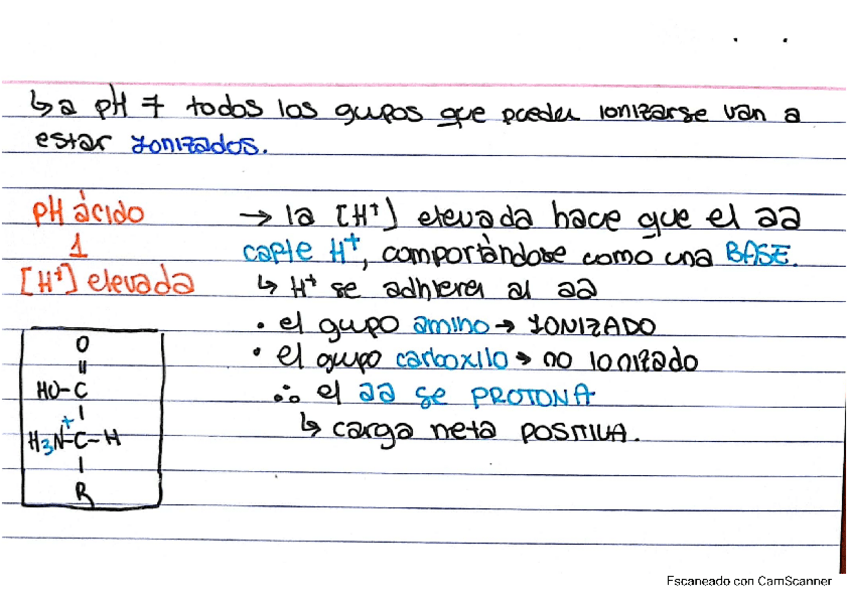 ↳ a pH 7 todos los grupos que pueden ionizarse van a
estar IONIZADOS.
pH ácido
1
[H⁺] elevada
→ la [H⁺] elevada hace que el aa
capte H⁺, comportándose como una BASE.
↳ H⁺ se adhieren al aa
• el grupo amino → IONIZADO
• el grupo carboxilo → no ionizado
∴ el aa se PROTONA
↳ carga neta POSITIVA.
O
HO-C
H₃N⁺-C-H
R
Escaneado con CamScanner